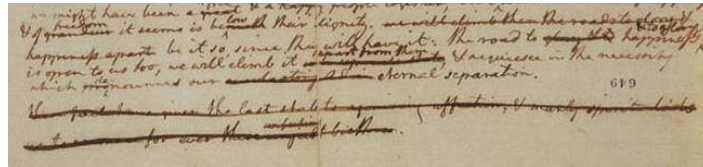 might have been a great & a happy people
& of grandeur it seems is below their dignity. we will climb then the roads to glory &
freedom
happiness apart be it so, since they will have it: the road to glory & to happiness
is open to us too, we will climb it apart from them & acquiesce in the necessity
which pronounces our everlasting eternal separation.
649
these facts have given the last stab to agonizing affection, & manly spirit bids
us to renounce for ever these unfeeling brethren.